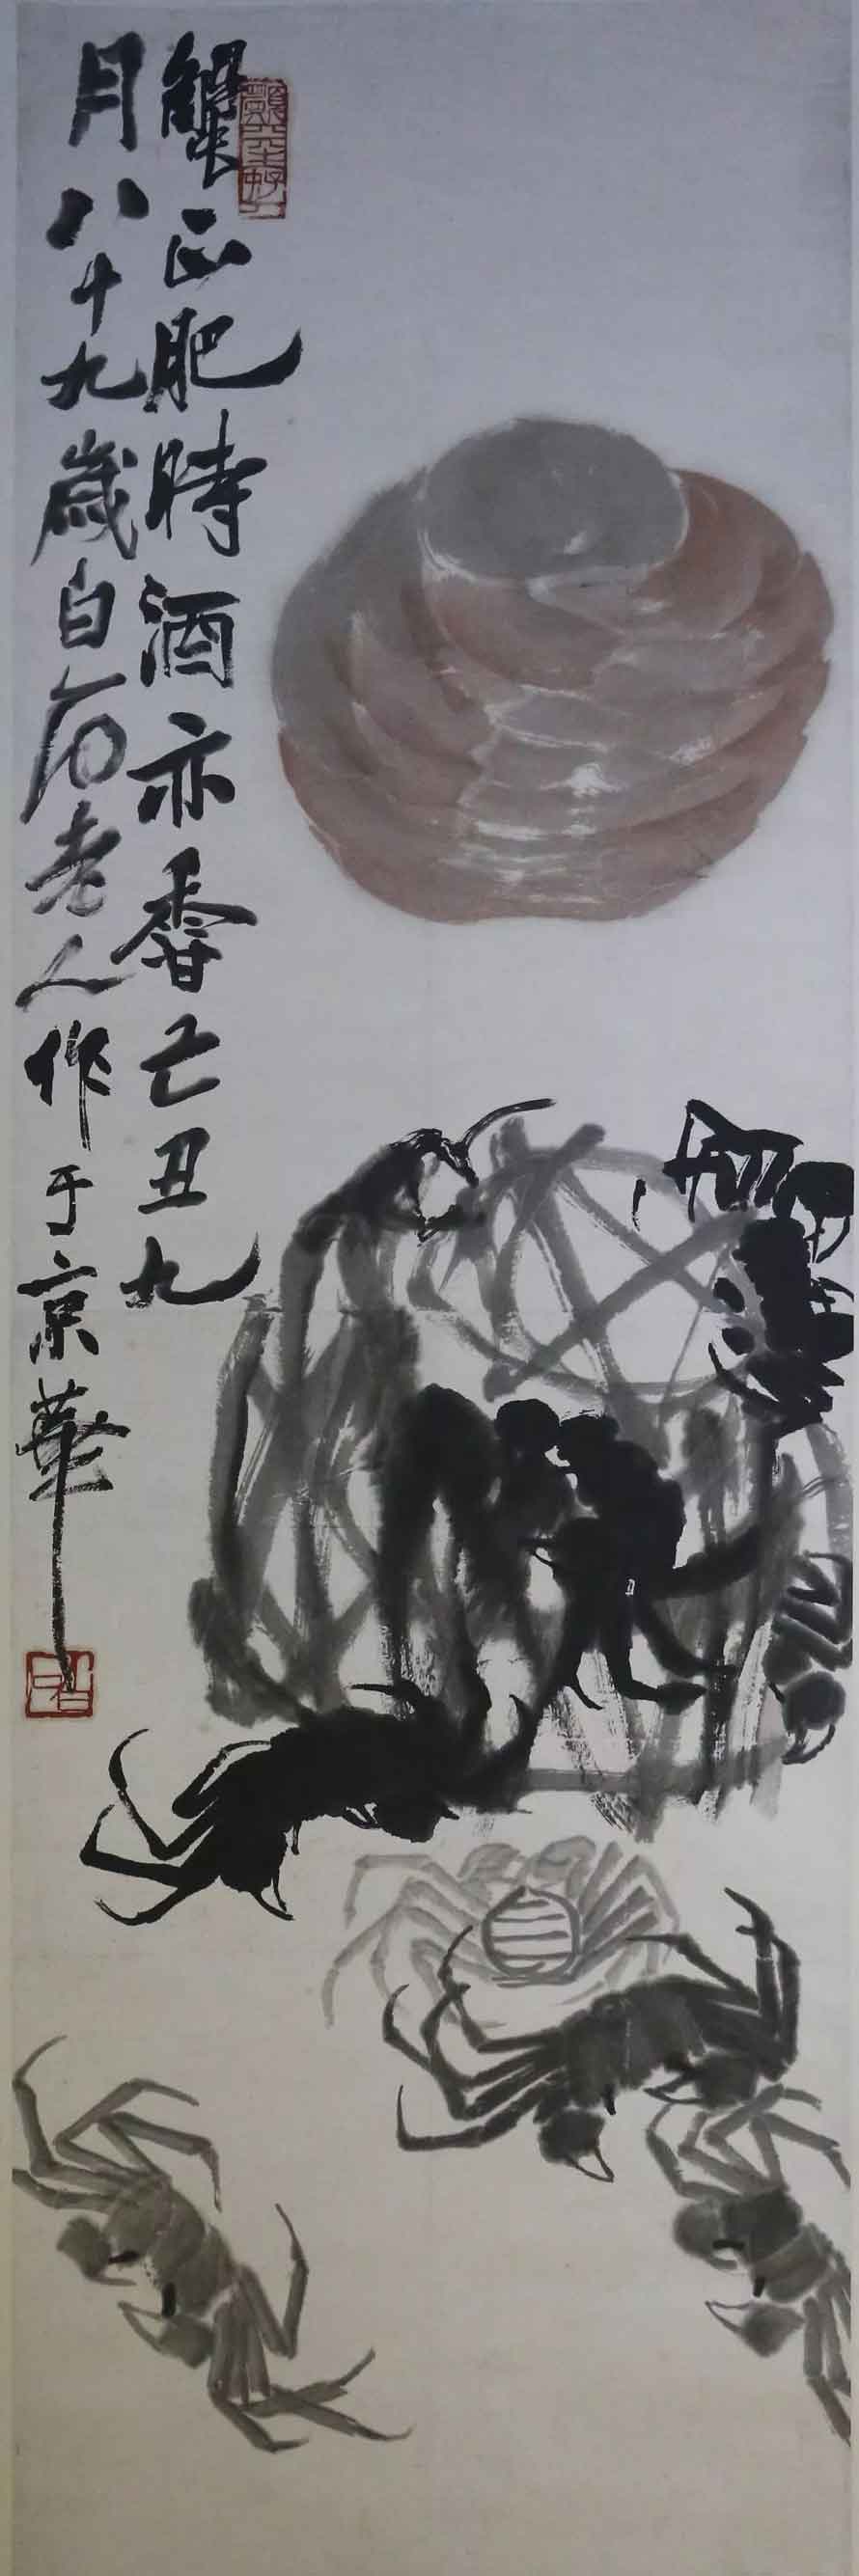 蟹正肥時酒亦香己丑九
月八十九歲白石老人作于京華